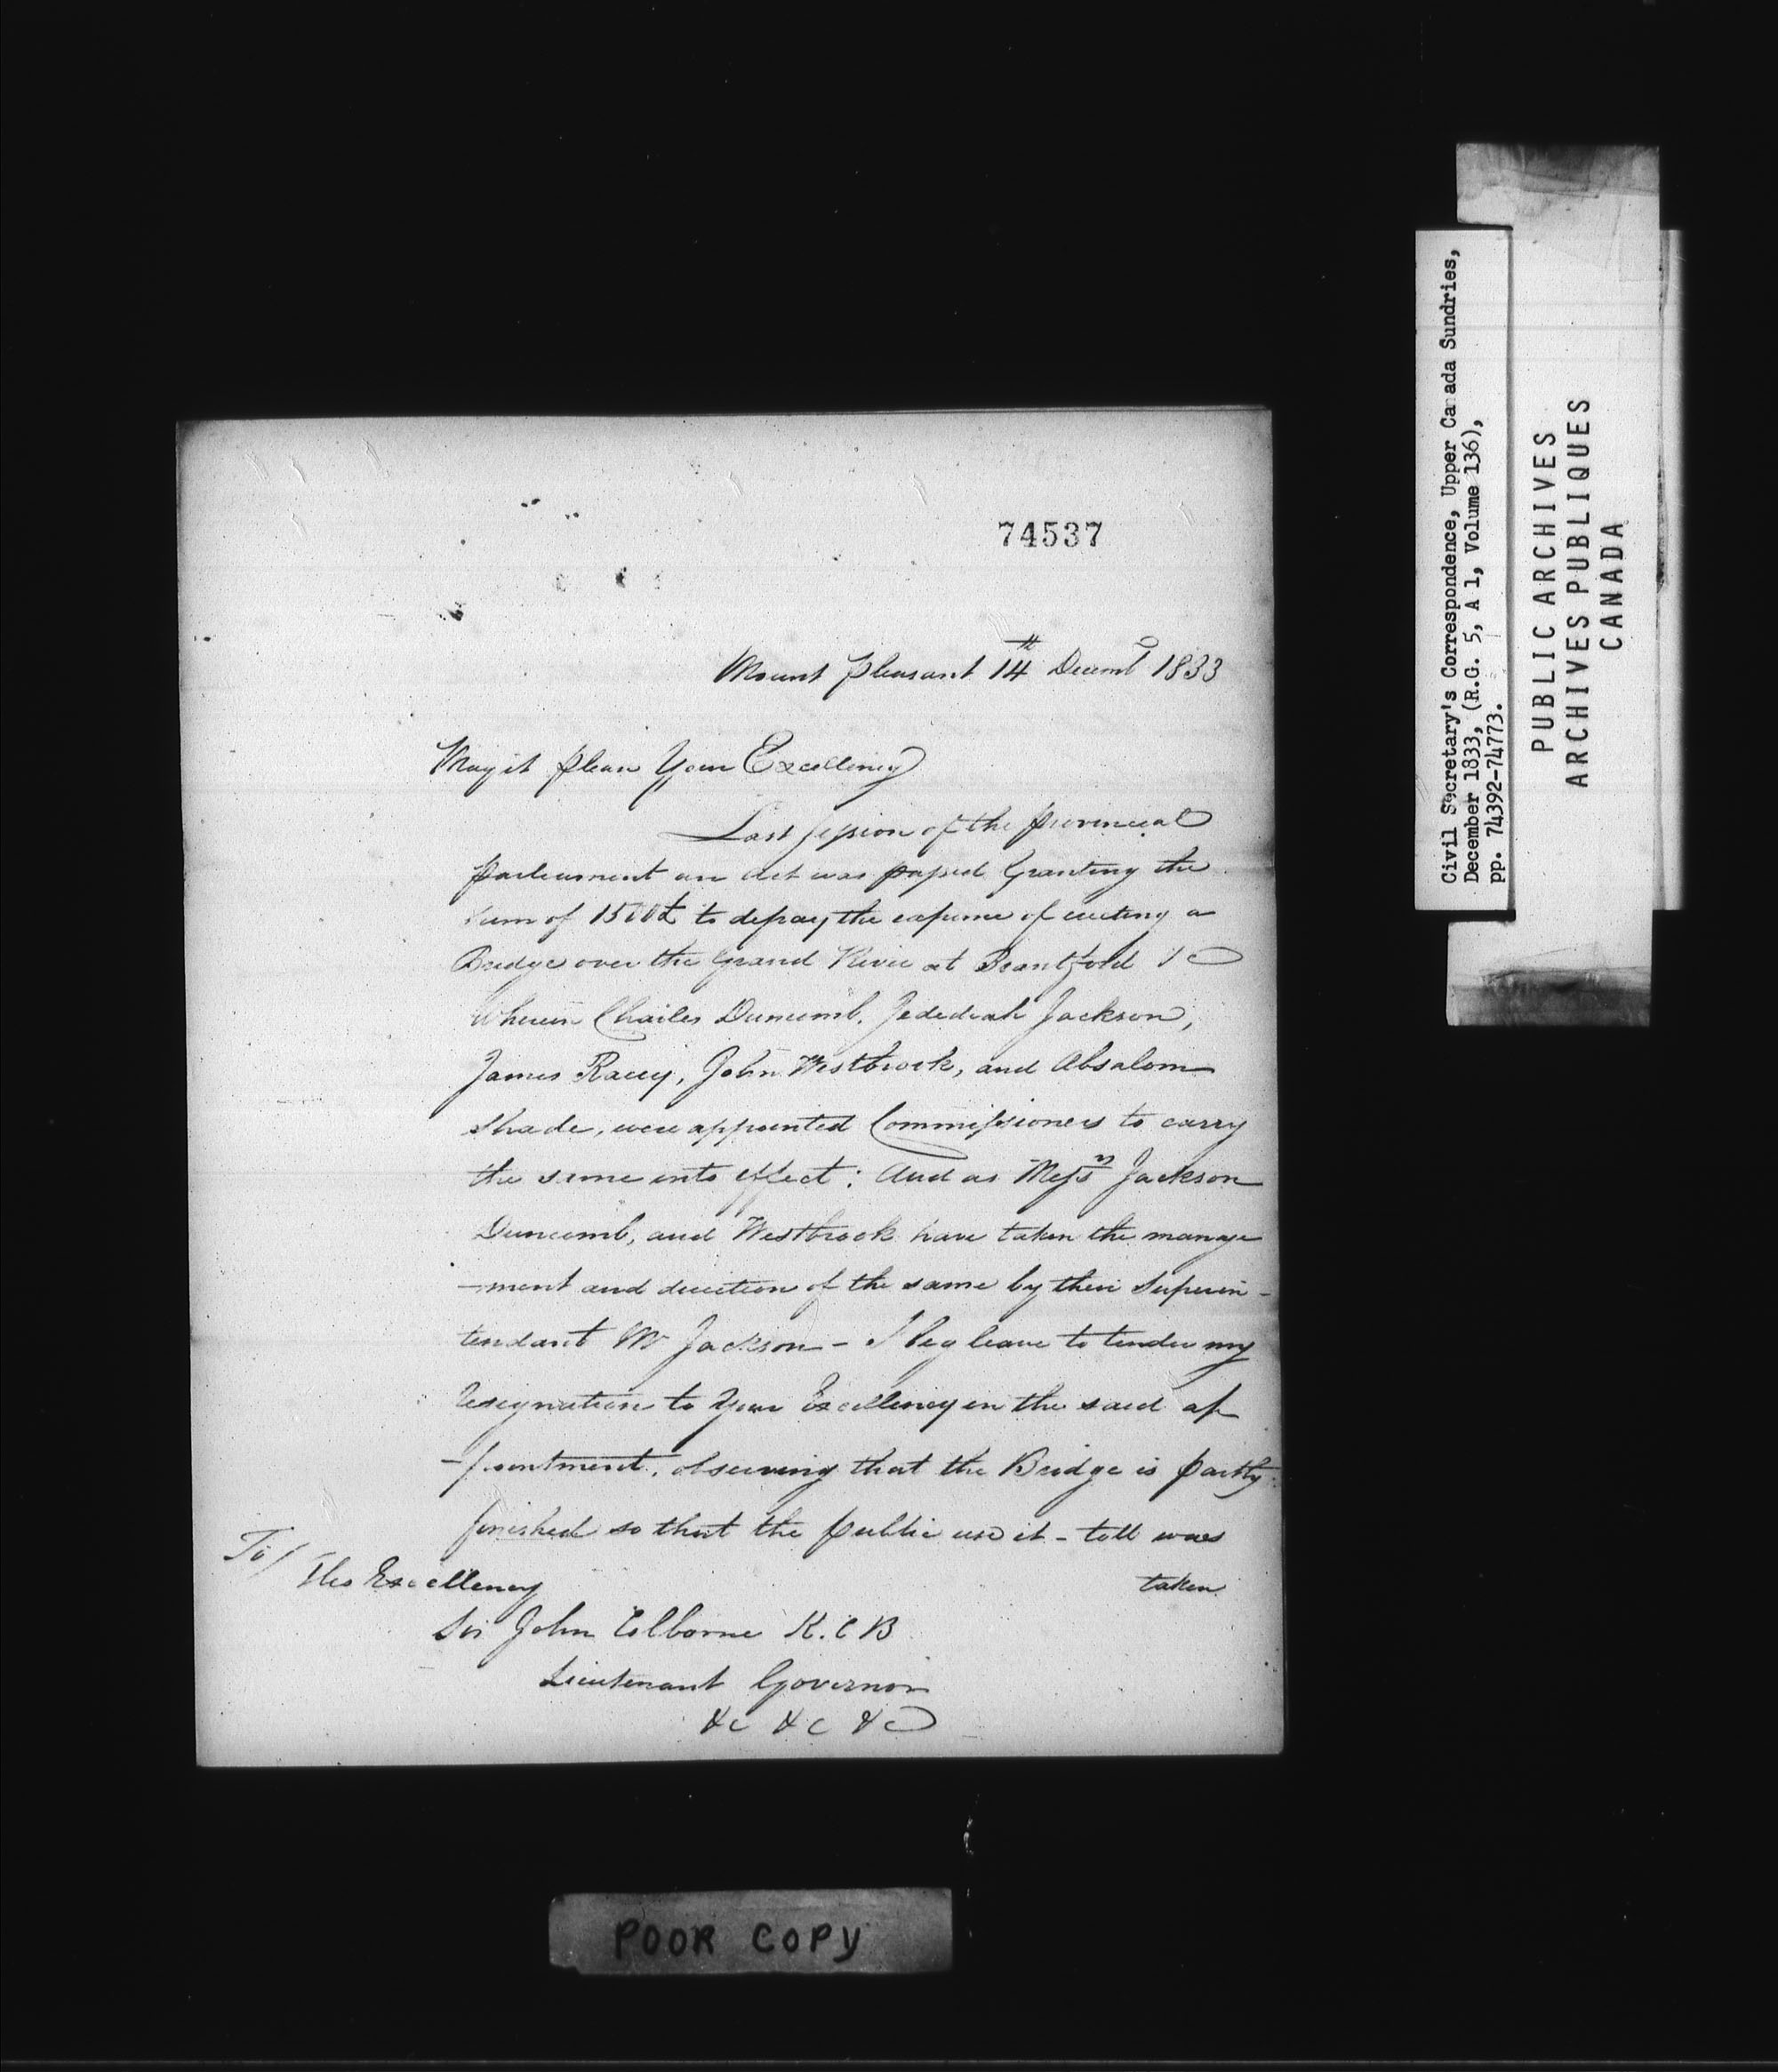 74537
Mount Pleasant 14th Decembr 1833
May it please Your Excellency
Last Session of the Provincial
Parliament an Act was passed Granting the
sum of 1500£ to defray the expense of erecting a
Bridge over the Grand River at Brantford &c
Wherein Charles Duncomb, Jedediah Jackson,
James Racey, John Westbrook, and Absalom
Shade, were appointed Commissioners to carry
the same into effect: And as Messrs Jackson
Duncomb, and Westbrook have taken the manage
-ment and direction of the same by their Superin-
tendant Mr Jackson - I beg leave to tender my
resignation to Your Excellency in the said ap
-pointment, observing that the Bridge is partly
finished so that the public use it - toll was
taken
To/
His Excellency
Sir John Colborne K.C.B
Lieutenant Governor
&c &c &c
Civil Secretary's Correspondence, Upper Canada Sundries,
December 1833, (R.G. 5, A 1, Volume 136),
pp. 74392-74773.
PUBLIC ARCHIVES
ARCHIVES PUBLIQUES
CANADA
POOR COPY